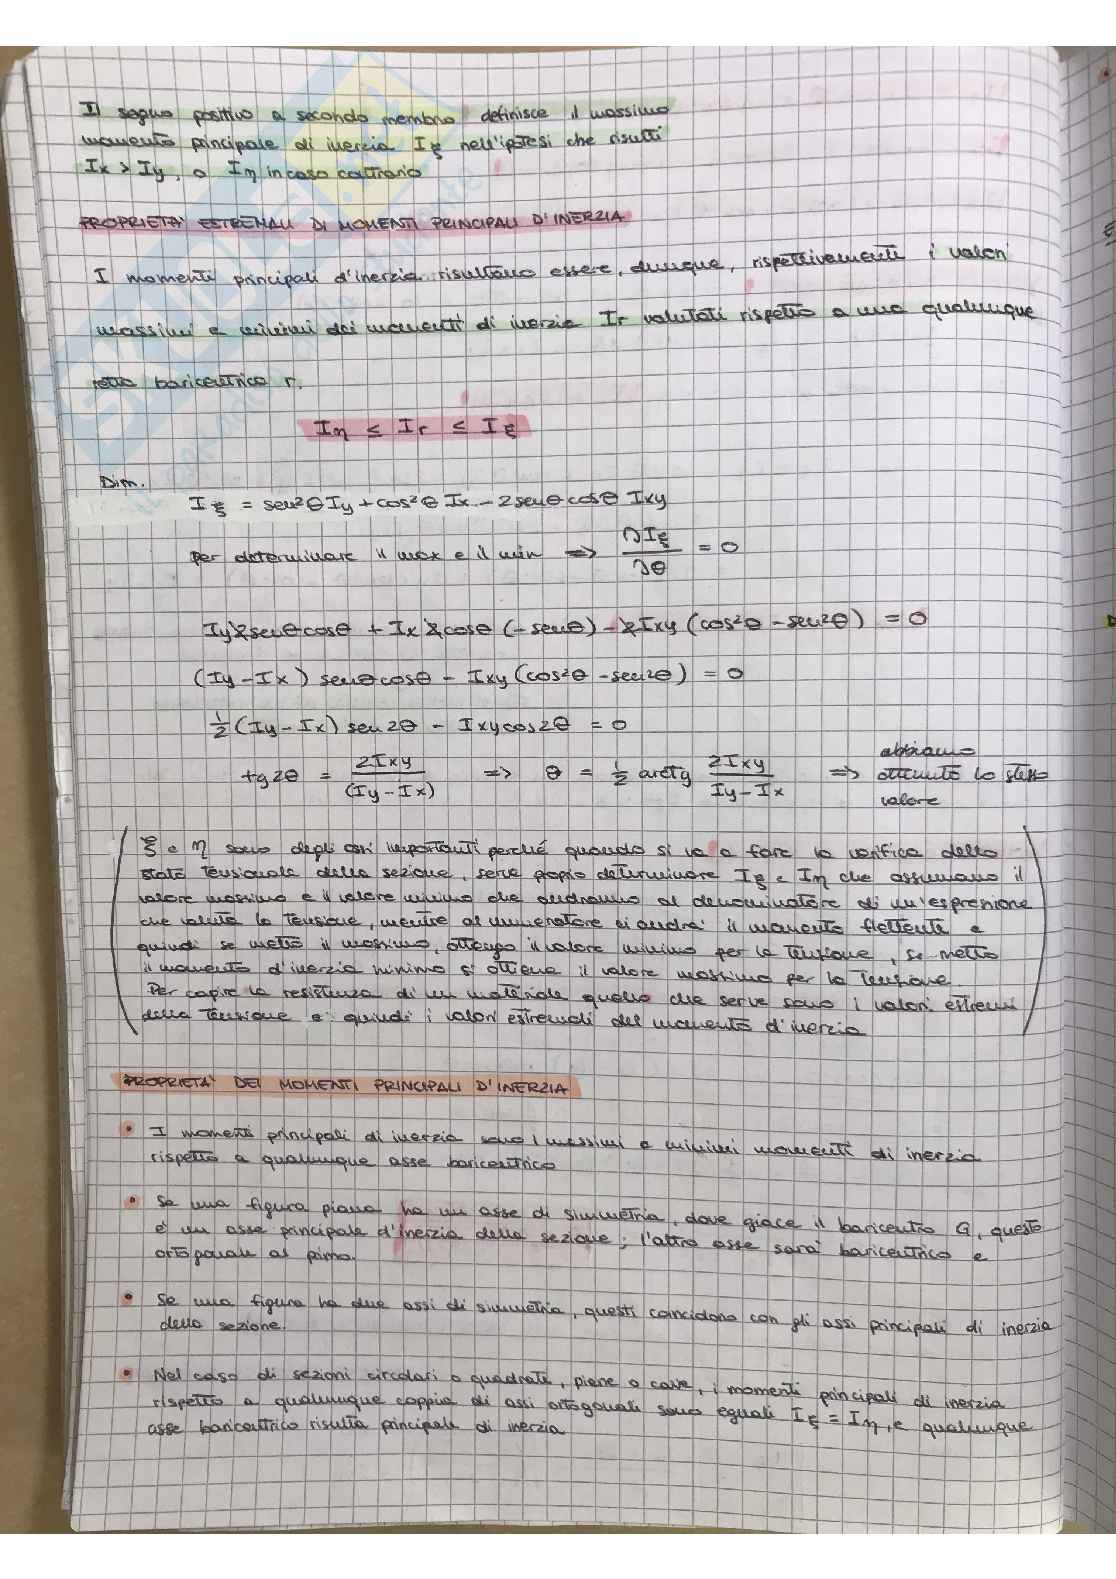 Il segno positivo a secondo membro definisce il massimo
momento principale di inerzia Iξ nell'ipotesi che risulti
Ix > Iy, o Iη in caso contrario
PROPRIETA' ESTREMALI DI MOMENTI PRINCIPALI D'INERZIA
I momenti principali d'inerzia risultano essere, dunque, rispettivamenti i valori
massimi e minimi dei momenti di inerzia Ir valutati rispetto a una qualunque
retta baricentrica r.
Iη ≤ Ir ≤ Iξ
Dim.
Iξ = sen²θ Iy + cos²θ Ix - 2senθcosθ Ixy
per determinare il max e il min => ∂Iξ/∂θ = 0
Iy2senθcosθ + Ix 2cosθ (-senθ) - 2Ixy (cos²θ - sen²θ) = 0
(Iy - Ix) senθcosθ - Ixy (cos²θ - sen²θ) = 0
½ (Iy - Ix) sen 2θ - Ixycos2θ = 0
tg2θ = 2Ixy/(Iy - Ix) => θ = ½ arctg 2Ixy/Iy - Ix => abbiamo
ottenuto lo stesso
valore
ξ e η sono degli assi importanti perché quando si va a fare la verifica dello
stato tensionale della sezione, serve proprio determinare Iξ e Iη che assumano il
valore massimo e il valore minimo che andranno al denominatore di un'espressione
che valuta la tensione, mentre al numeratore ci andrà il momento flettente e
quindi se metto il massimo, ottengo il valore minimo per la tensione, se metto
il momento d'inerzia minimo si ottiene il valore massimo per la tensione.
Per capire la resistenza di un materiale quello che serve sono i valori estremi
della tensione e quindi i valori estremali del momento d'inerzia
PROPRIETA' DEI MOMENTI PRINCIPALI D'INERZIA
• I momenti principali di inerzia sono i massimi e minimi momenti di inerzia
rispetto a qualunque asse baricentrico
• Se una figura piana ha un asse di simmetria, dove giace il baricentro G, questo
e' un asse principale d'inerzia della sezione; l'altro asse sarà baricentrico e
ortogonale al primo.
• Se una figura ha due assi di simmetria, questi concidono con gli assi principali di inerzia
della sezione.
• Nel caso di sezioni circolari o quadrate, piene o cave, i momenti principali di inerzia
rispetto a qualunque coppia di assi ortogonali sono eguali Iξ = Iη, e qualunque
asse baricentrico risulta principale di inerzia